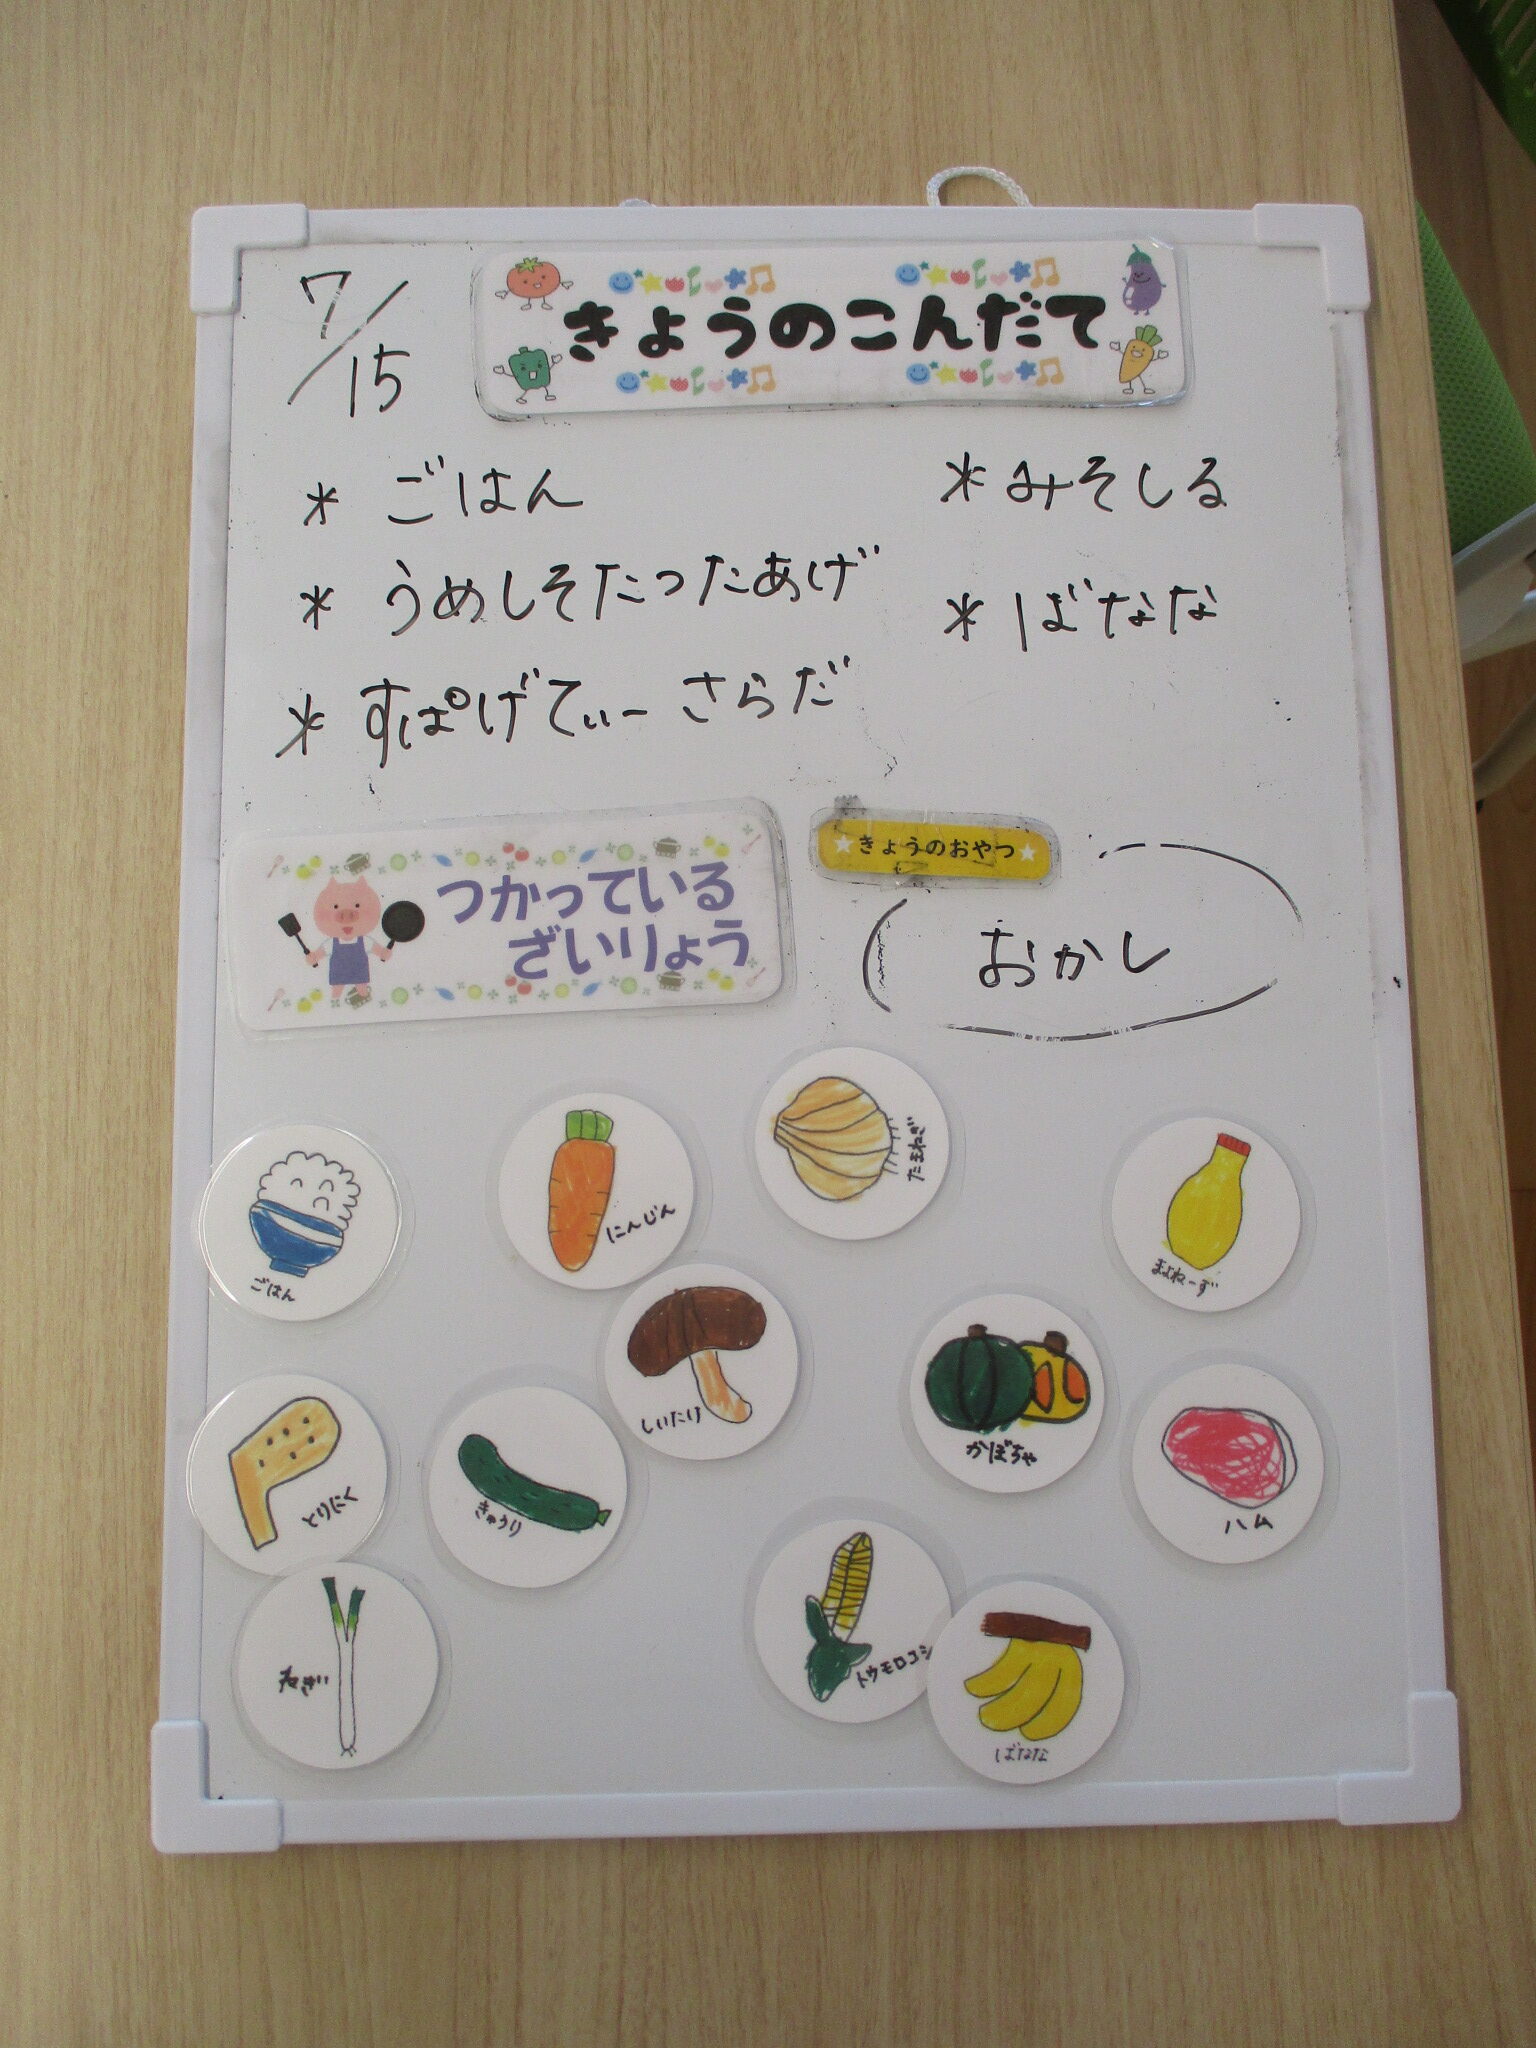 7/15
きょうのこんだて
* ごはん
* うめしそたつたあげ
* すぱげてぃーさらだ
* みそしる
* ばなな
つかっている
ざいりょう
きょうのおやつ
おかし
ごはん
にんじん
たまねぎ
まよねーず
しいたけ
かぼちゃ
とりにく
きゅうり
ハム
ねぎ
トウモロコシ
ばなな